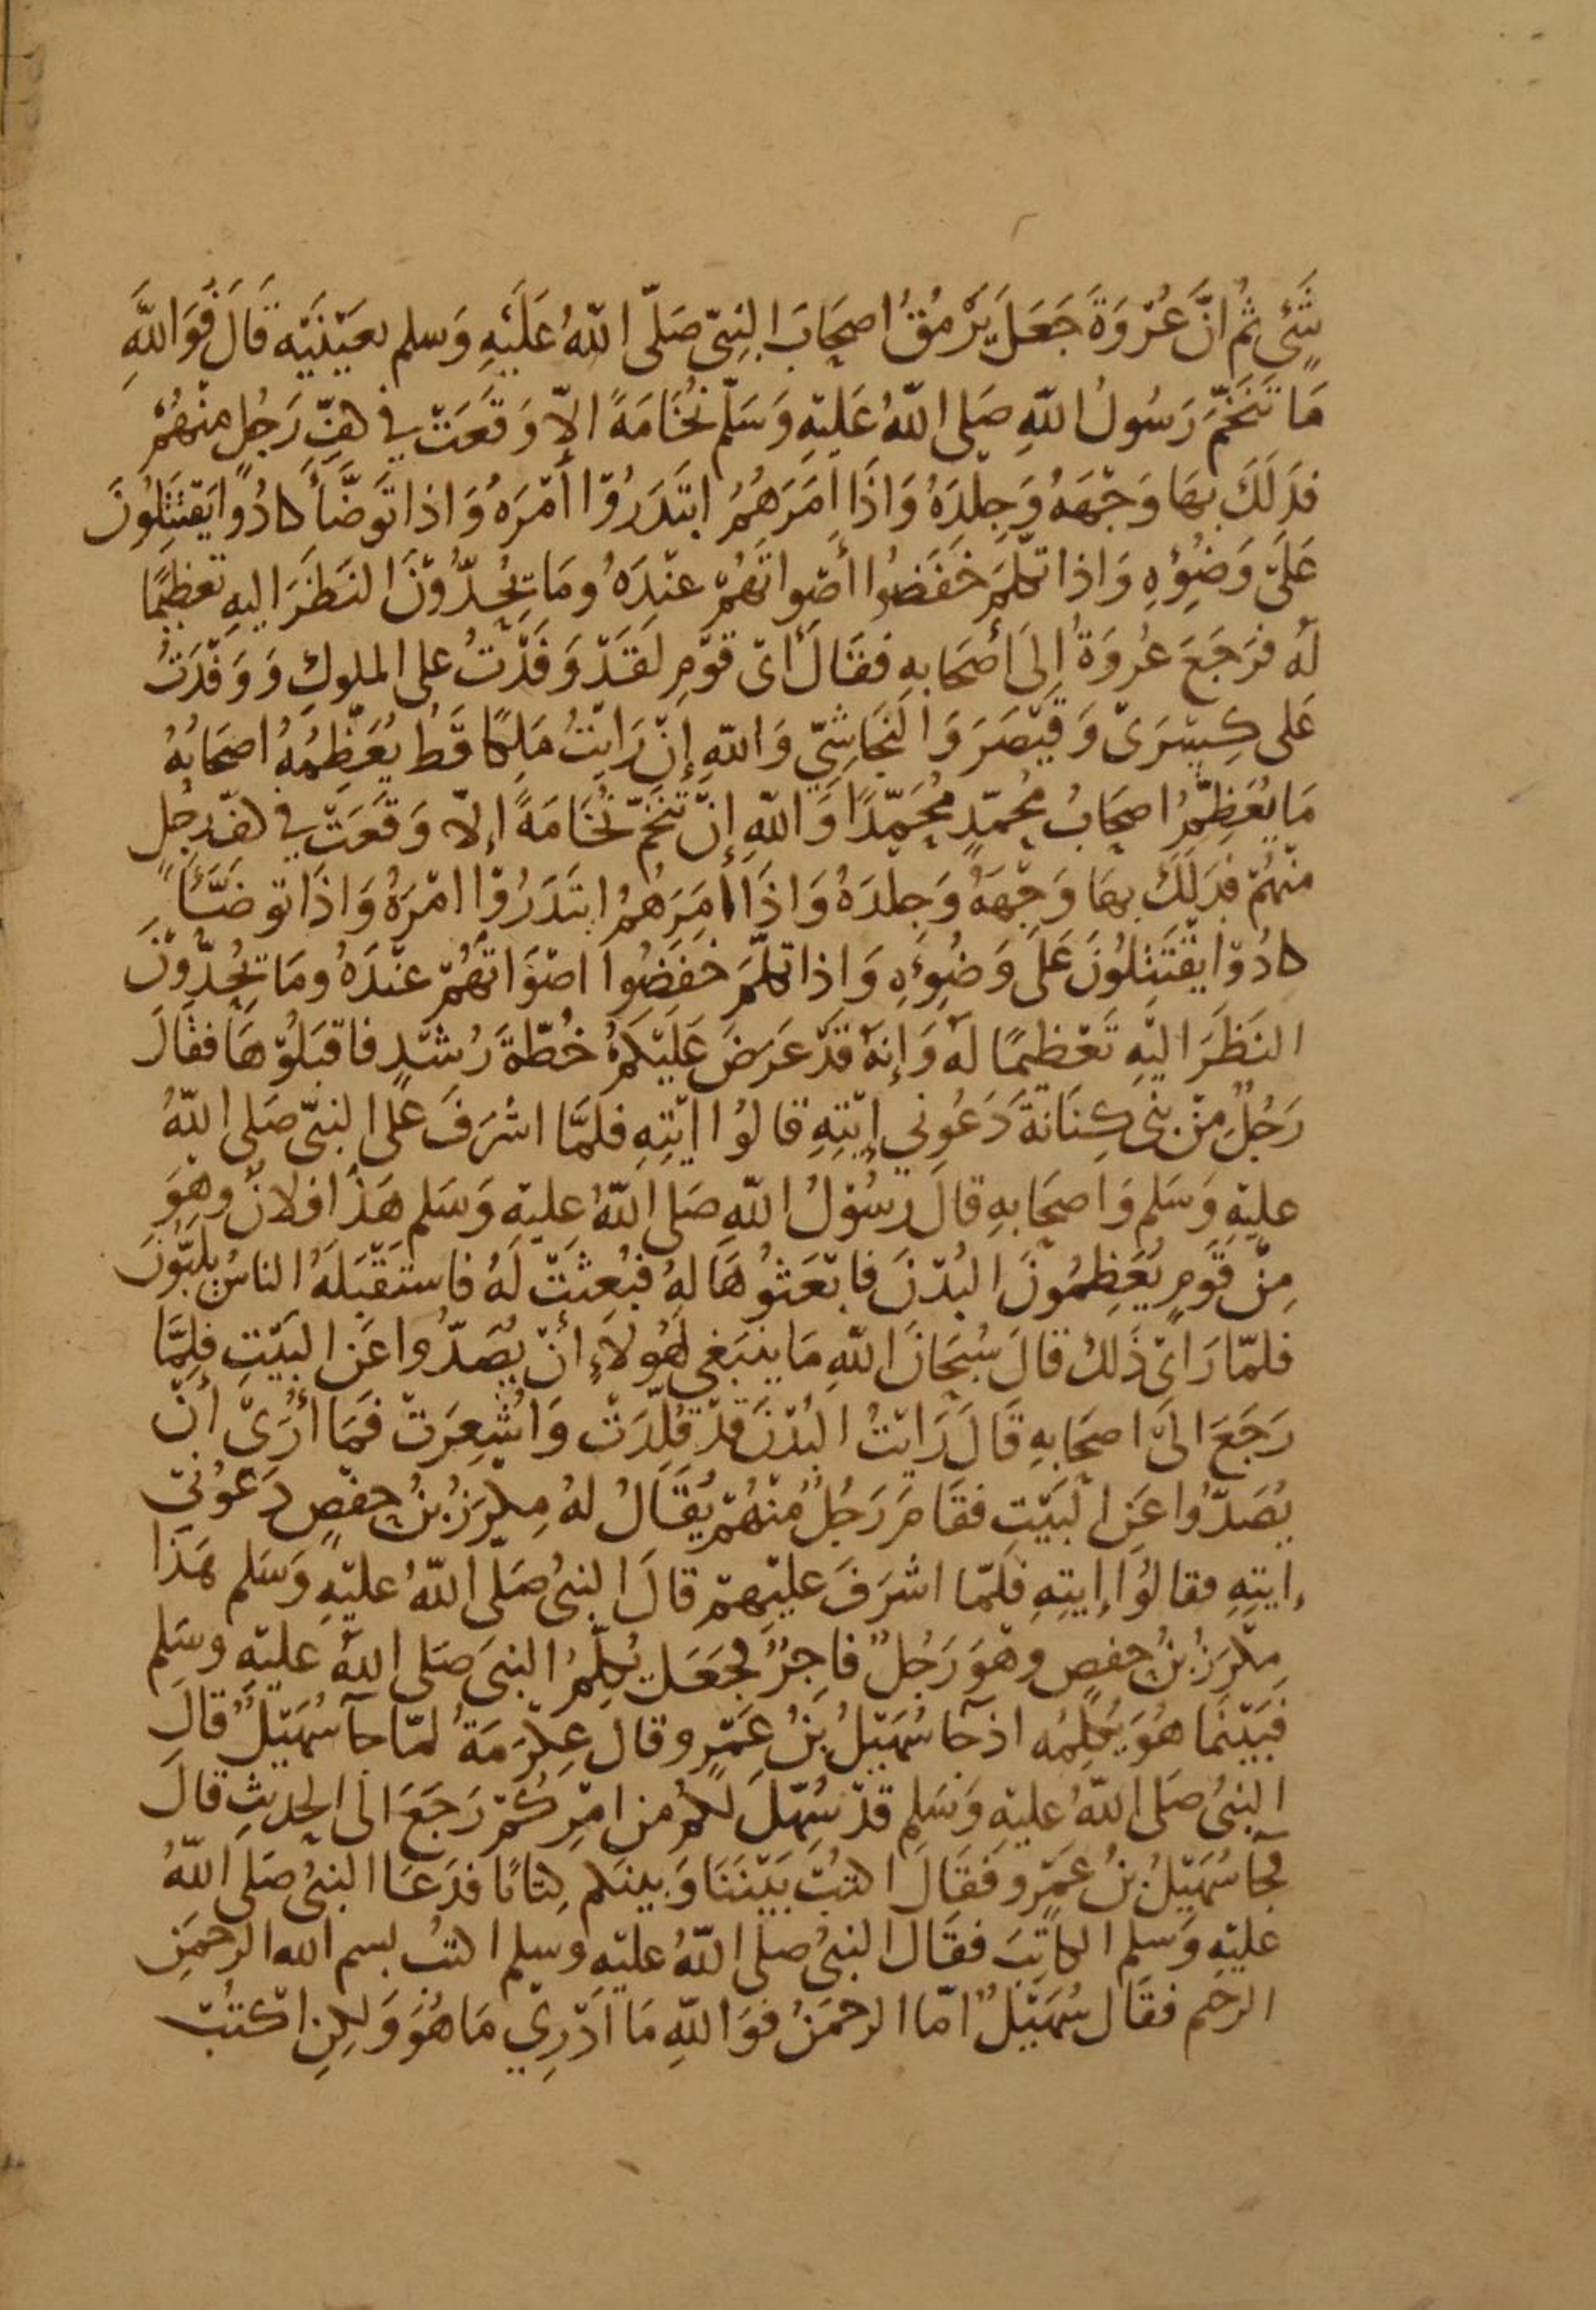 شَيْءٍ ثُمَّ انَّ عُرْوَةَ جَعَلَ يَرْمُقُ اصحَابَ النبيّ صَلّى اللّهُ عَلَيْهِ وَسلم بعَيْنَيْه قَالَ فَوَاللّهِ
مَا تَنَخَّمَ رَسُولُ اللّهِ صَلى اللّهُ عَليْهِ وَسَلّم نُخَامَةً الاّ وَقَعَتْ في كفِّ رَجُلٍ منْهُمْ
فدَلَكَ بهَا وَجْهَهُ وَجِلْدَهُ وَاذَا امَرَهُمُ ابتَدَرُوْا أمْرَهُ وَاذا تَوَضَّأَ كادُوا يَقْتَتِلُونَ
عَلَى وَضُوْئِهِ وَاذا تكلمَ خَفَضُوا أصْواتَهُمْ عنْدَهُ ومَا يُحِدُّوْنَ النَظَرَ اليهِ تعْظِيمًا
لَهُ فَرَجَعَ عُرْوَةُ إلَى أصْحَابهِ فقَالَ أىْ قَوْمِ لَقَدْ وَفَدْتُ على الملوكِ وَوَفَدْتُ
عَلى كِسْرَىْ وَقَيْصَرَ وَالنَّجَاشِيِّ وَاللّهِ إنْ رَايْتُ مَلِكًا قَطُ يُعَظِّمُهُ اصحَابُهُ
مَا يُعَظِّمُ اصحَابُ مُحُمّدٍ مُحَمَّدًا وَاللّهِ إنْ تَنَخّمَ نُخَامَةً إلاّ وَقَعَتْ في كفّ رجُلٍ
منْهُمْ فدَلَكَ بهَا وَجْهَهُ وَجلْدَهُ وَاذَا أمَرَهُمُ ابتَدَرُوْا امْرَهُ وَاذَا توضَّأَ
كادُوْا يَقْتَتِلُونَ عَلَى وَضُوْئِهِ وَاذا تكلَّمَ خَفَضُوا اصْوَاتَهُمْ عنْدَهُ ومَا يُحِدُّوْنَ
النَظَرَ اليْهِ تَعْظيمًا لهُ وَإنهُ قدْ عَرَضَ عَلَيْكمْ خُطّةَ رُشْدٍ فاقبَلُوْهَا فقالَ
رَجُلٌ مِنْ بني كِنَانَةَ دَعُوني إيْتِهِ قالوُا ايْتِهِ فلمَّا اشْرَفَ عَلى النبيّ صَلى اللّهُ
عليْهِ وَسَلم وَاصحَابهِ قالَ رَسُوْلُ اللّهِ صَلى اللّهُ عليْهِ وَسَلم هَذَا فلانٌ وهْوَ
مِنْ قَوْمٍ يُعَظِمُونَ البُدْنَ فابْعَثُوْهَا لهُ فبُعِثَتْ لَهُ فاستَقْبَلَهُ الناسُ يلَبُّونَ
فلمّا رَاىْ ذَلكَ قالَ سُبْحَانَ اللّهِ مَا ينبَغي لهؤلاَءِ أنْ يُصَدُّوا عَنِ البَيْتِ فلمَّا
رَجَعَ الىَ اصحَابهِ قَالَ رَايْتُ البُدْنَ قدْ قُلِّدَتْ وَاشْعِرَتْ فمَا أرَىْ أنْ
يُصَدُّوا عَنِ البَيْتِ فقَامَ رَجُلٌ منْهُمْ يُقَالُ لهُ مِكرَزُ بْنُ حفْصٍ دَعُوْنيْ
إيتِهِ فقالوُا إيتِهِ فَلمّا اشرَفَ عليْهِمْ قالَ النبيُ صَلّى اللّهُ عليْهِ وَسَلم هَذَا
مِكْرَزُ بْنُ حفصٍ وهْوَ رَجُلٌ فاجِرٌ فجَعَلَ يُكلِّمُ النبيَ صَلى اللّهُ عليْهِ وسَلم
فبَيْنَمَا هُوَ يُكلِّمُه اذ جآ سُهَيْلُ بْنُ عَمْرٍو قالَ عِكْرِمَةُ لمّا جآ سُهَيْلٌ قالَ
النبيُ صَلى اللّهُ عليْهِ وَسَلم قدْ سَهُلَ لكمْ من امْرِكمْ رَجَعَ الى الحديثِ قالَ
فجآ سُهَيْلُ بْنُ عَمْرٍو فَقَالَ اكتُبْ بَيْنَنَا وَبينكم كتابًا فدَعَا النبيُ صَلى اللّهُ
عليْهِ وَسلم الكاتِبَ فقَالَ النبيُ صلى اللّهُ عليْهِ وسلم اكتبْ بسم الله الرحمَنِ
الرحيم فقَالَ سُهَيْلٌ امّا الرحمَنُ فوَاللّهِ مَا ادْرِيْ مَا هُوَ وَلكِنِ اكْتُبْ